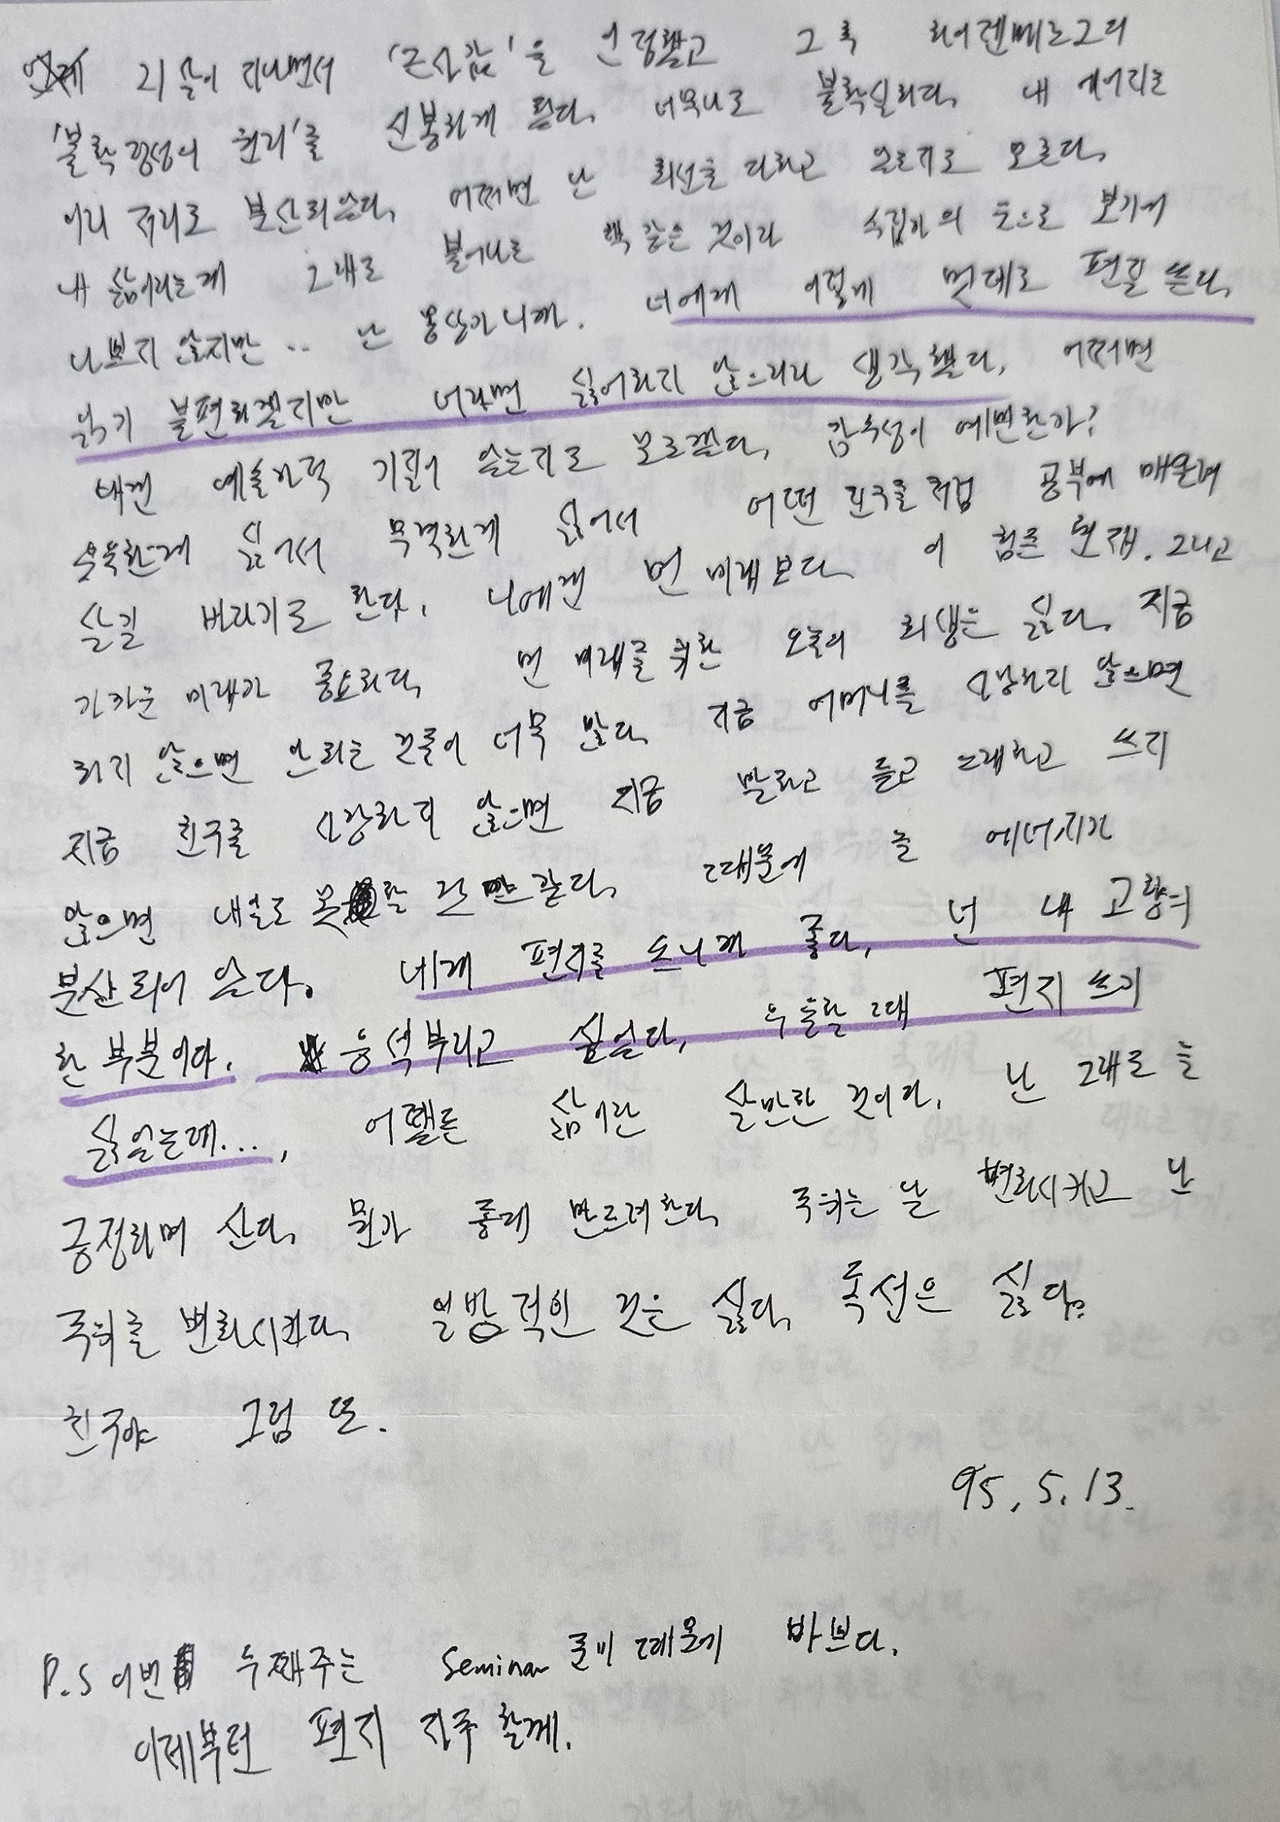 21살이 지나면서 '근사값'을 인정했고 그 후 하이젠베르그의
'불확정성의 원리'를 신봉하게 된다. 너무나도 불확실하다. 내 에너지는
이리 저리로 분산되있다. 어쩌면 난 최선을 다하고 있는지도 모른다.
내 삶이라는게 그대로 불어나는 책 같은 것이라 수집가의 눈으로 보기에
나쁘지 않지만.. 난 몽상가니까. 너에게 이렇게 멋대로 편질 쓴다.
읽기 불편하겠지만 너라면 싫어하지 않으리라 생각했다. 어쩌면
내겐 예술가적 기질이 있는지도 모르겠다. 감수성이 예민한가?
우울한게 싫어서 무력한게 싫어서 어떤 친구를처럼 공부에 매달려
살길 바라기도 한다. 나에겐 먼 미래보다 이 힘든 현재. 그리고
가까운 미래가 중요하다. 먼 미래를 위한 오늘의 희생은 싫다. 지금
하지 않으면 안되는 것들이 너무 많다. 지금 어머니를 사랑하지 않으면
지금 친구를 사랑하지 않으면 지금 말하고 듣고 노래하고 쓰지
않으면 내일도 못할 것만 같다. 때문에 늘 에너지가
분산되어 있다. 네게 편지를 쓰니까 좋다. 넌 내 고향의
한 부분이다. 응석부리고 싶었다. 우울할 때 편지 쓰기
싫었는데..., 어쨌든 삶이란 살만한 것이다. 난 그대로 늘
긍정하며 산다. 뭔가 좋게 만드려한다. 주위는 날 변화시키고 난
주위를 변화시킨다. 일방적인 것은 싫다. 독선은 싫다.
친구야 그럼 또.
95. 5. 13.
P.S 이번 두째주는 Seminar 준비 때문에 바쁘다.
이제부턴 편지 자주 할께.